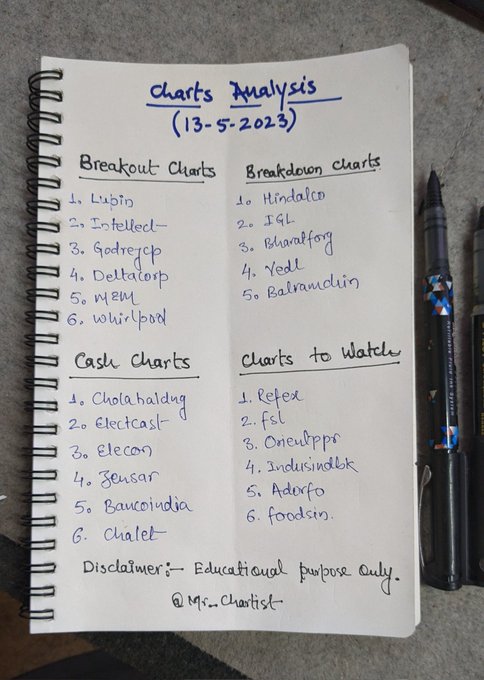 Charts Analysis
(13-5-2023)
Breakout Charts
1. Lupin
2. Intellect
3. Godrejcp
4. Deltacorp
5. M&M
6. Whirlpool
Breakdown Charts
1. Hindalco
2. IGL
3. Bharatforg
4. Vedl
5. Balramchin
Cash Charts
1. Cholahaldng
2. Electcast
3. Elecon
4. Zensar
5. Bancoindia
6. Chalet
Charts to Watch
1. Refex
2. fsl
3. Orientppr
4. Indusindbk
5. Adorfo
6. foodsin.
Disclaimer:- Educational purpose Only.
@Mr_Chartist